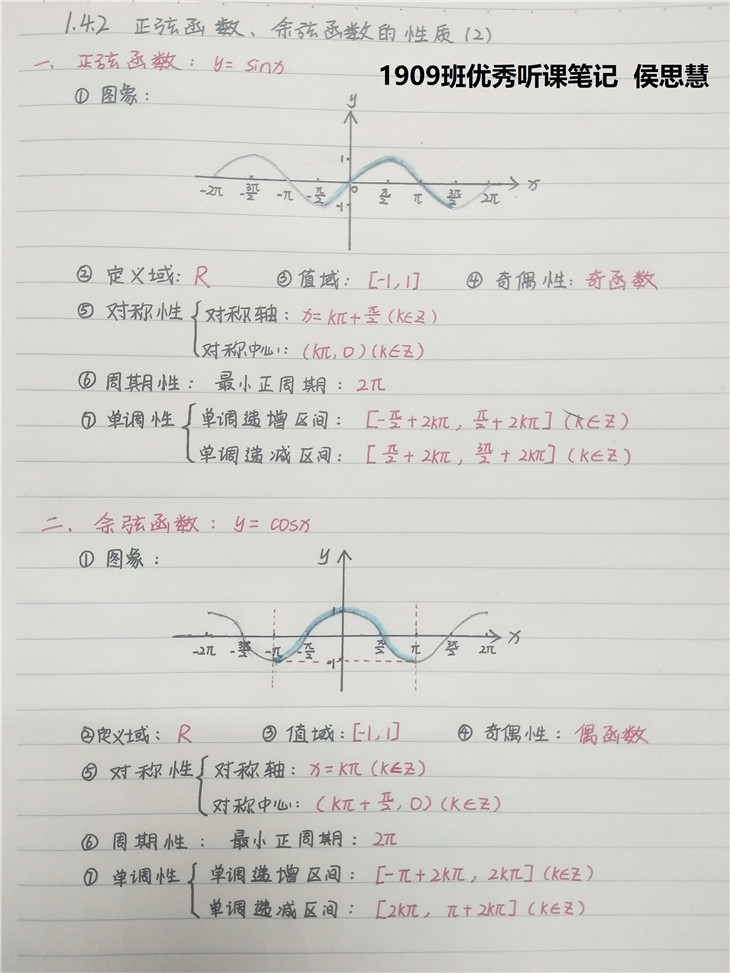 1.4.2 正弦函数、余弦函数的性质(2)
一、正弦函数: y= sinx
1909班优秀听课笔记 侯思慧
① 图象:
y
1
-2π -3π/2 -π -π/2 0 π/2 π 3π/2 2π x
-1
② 定义域: R ③ 值域: [-1,1] ④ 奇偶性: 奇函数
⑤ 对称性 { 对称轴: x=kπ+π/2 (k∈Z)
对称中心: (kπ,0)(k∈Z)
⑥ 周期性: 最小正周期: 2π
⑦ 单调性 { 单调递增区间: [-π/2+2kπ, π/2+2kπ](k∈Z)
单调递减区间: [π/2+2kπ, 3π/2+2kπ](k∈Z)
二、余弦函数: y= cosx
① 图象:
y
1
-2π -3π/2 -π -π/2 π/2 π 3π/2 2π x
-1
②定义域: R ③ 值域:[-1,1] ④ 奇偶性: 偶函数
⑤ 对称性 { 对称轴: x=kπ(k∈Z)
对称中心: (kπ+π/2,0)(k∈Z)
⑥ 周期性: 最小正周期: 2π
⑦ 单调性 { 单调递增区间: [-π+2kπ, 2kπ](k∈Z)
单调递减区间: [2kπ, π+2kπ](k∈Z)